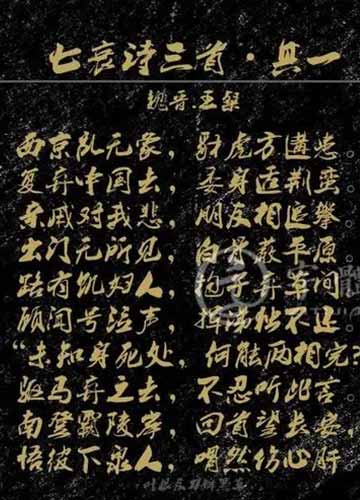 七哀诗三首·其一
魏晋.王粲
西京乱无象，豺虎方遘患
复弃中国去，委身适荆蛮
亲戚对我悲，朋友相追攀
出门无所见，白骨蔽平原
路有饥妇人，抱子弃草间
顾闻号泣声，挥涕独不还
“未知身死处，何能两相完？
驱马弃之去，不忍听此言
南登霸陵岸，回首望长安
悟彼下泉人，喟然伤心肝
叶根友刀锋黑草